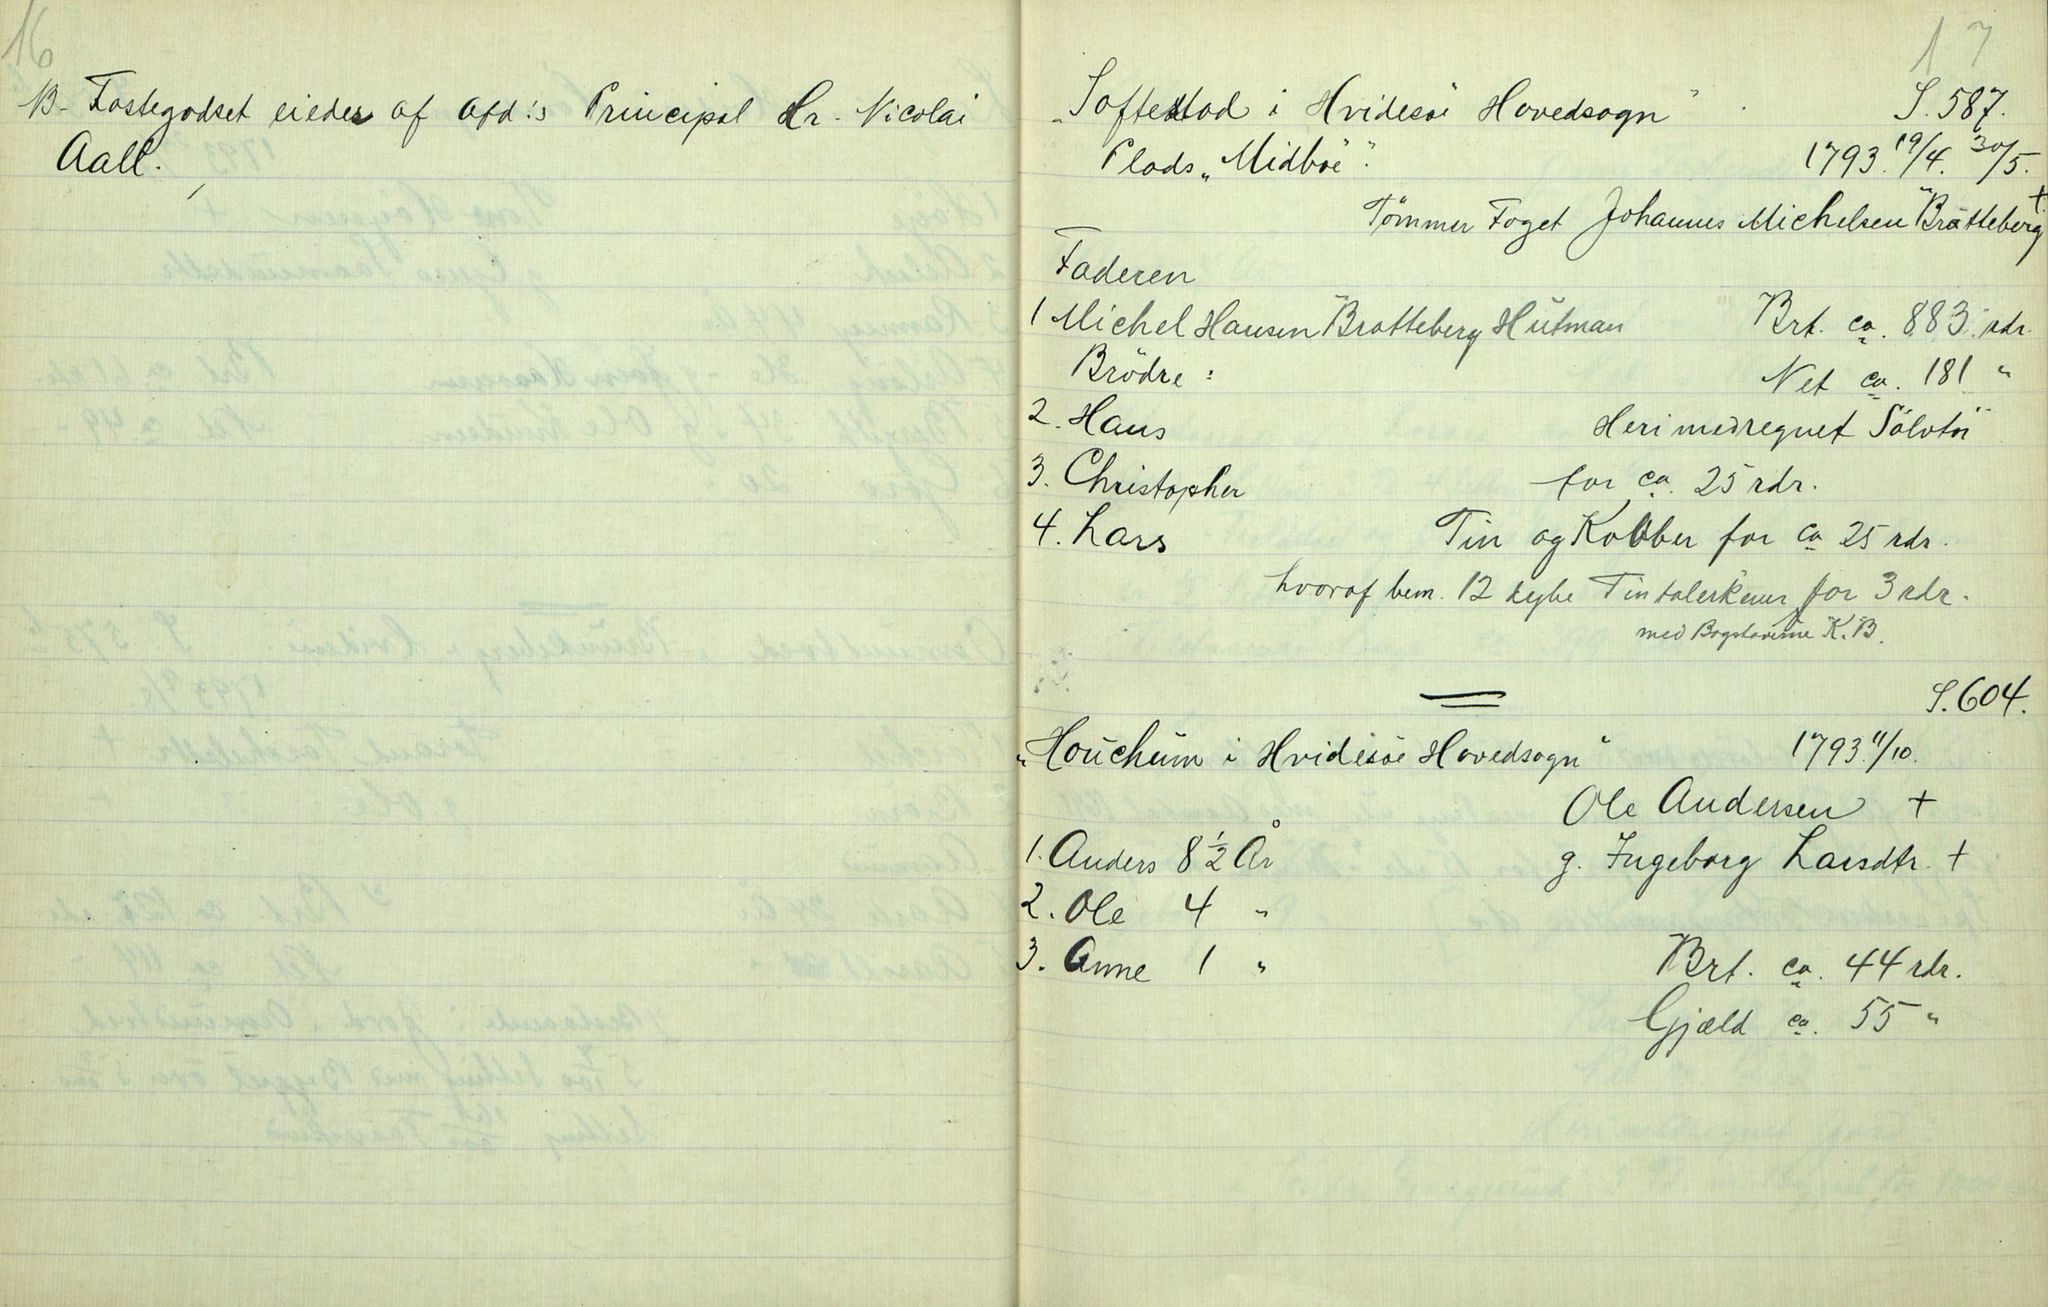 16
B- Fæstegodset eiedes af Afd:s Principal Hr. Nicolai
Aall.
17
"Softestad i Hvidesöe Hovedsogn" S. 587.
Plads "Midböe". 1793 19/4. 30/5.
Tömmer Foget Johannes Michelsen "Bråtteberg" +
Faderen
1 Michel Hansen Bratteberg Hütman Brt. ca. 883 rdr.
Brödre: Net ca. 181 "
2. Hans Heri medregnet Sölvtöi
3. Christopher for ca. 25 rdr.
4. Lars Tin og Kobber for ca 25 rdr.
hvoraf bem. 12 dybe Tintalerkener for 3 rdr.
med Bogstaverne K. B.
S. 604.
"Houchüm i Hvidesöe Hovedsogn" 1793 11/10.
Ole Andersen +
1. Anders 8 1/2 År g. Ingeborg Larsdtr. +
2. Ole 4 "
3. Anne 1 " Brt. ca. 44 rdr.
Gjæld ca. 55 "